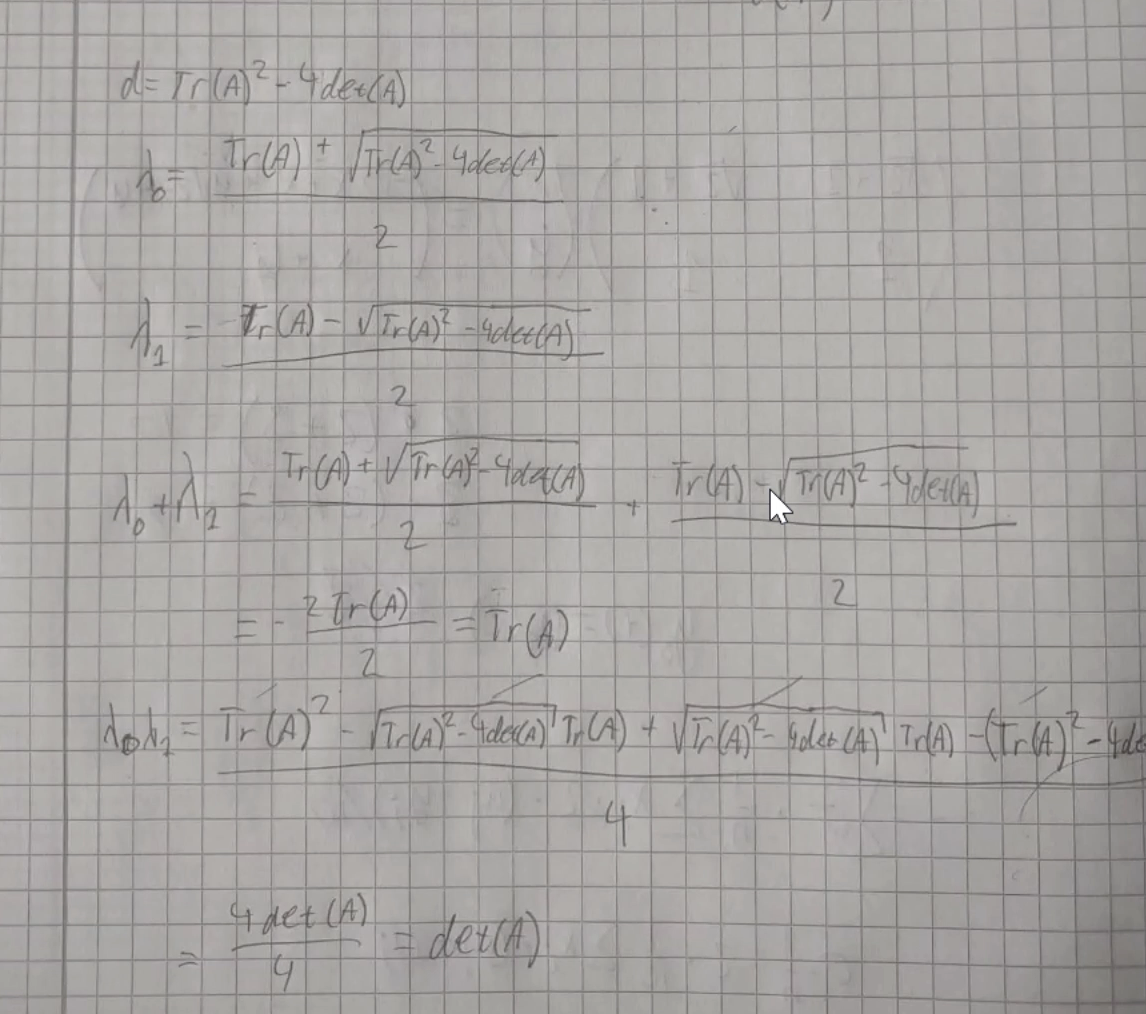 d = Tr(A)² - 4det(A)
λ₀ = (Tr(A) + √(Tr(A)² - 4det(A))) / 2
λ₁ = (Tr(A) - √(Tr(A)² - 4det(A))) / 2
λ₀ + λ₁ = (Tr(A) + √(Tr(A)² - 4det(A))) / 2 + (Tr(A) - √(Tr(A)² - 4det(A))) / 2
= - 2Tr(A) / 2 = Tr(A)
λ₀λ₁ = (Tr(A)² - √(Tr(A)² - 4det(A)) Tr(A) + √(Tr(A)² - 4det(A)) Tr(A) - (Tr(A)² - 4de / 4
= 4det(A) / 4 = det(A)